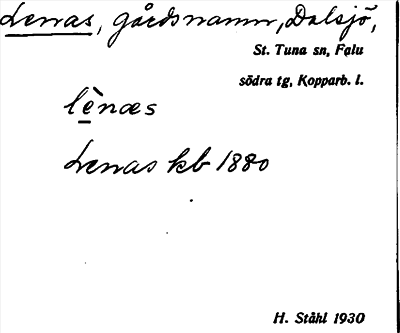 Lenas, gårdsnamn, Dalsjö,
St. Tuna sn, Falu
södra tg, Kopparb. l.
lè̲næs
Lenas kb 1880
H. Ståhl 1930